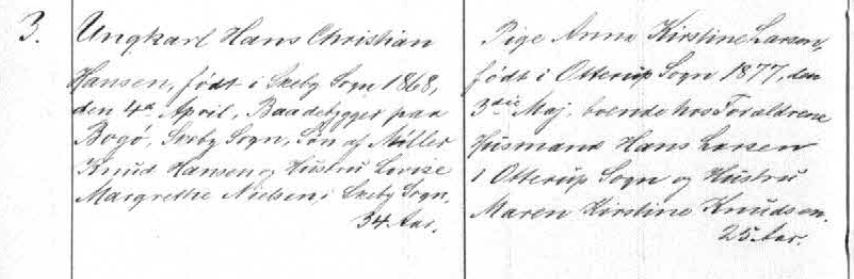 3.
Ungkarl Hans Christian
Hansen, født i Skeby Sogn 1868,
den 4de April, Baadebygger paa
Bogø, Sørby Sogn, Søn af Møller
Knud Hansen og Hustru Lovise
Margrethe Nielsen i Skeby Sogn.
34 Aar.
Pige Anna Kirstine Larsen,
født i Otterup Sogn 1877, den
3die Maj, boende hos Forældrene
Husmand Hans Larsen
i Otterup Sogn og Hustru
Maren Kirstine Knudsen.
25 Aar.